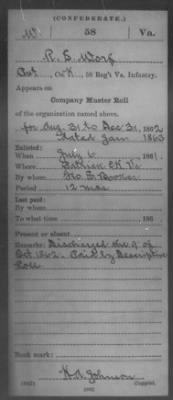 (CONFEDERATE.)
58 Va.
R. S. Worf
Co. K, 58 Reg't Va. Infantry.
Appears on
Company Muster Roll
of the organization named above,
for Aug. 31 to Dec 31, 1862
Dated Jan 1863
Enlisted:
When July 6, 186
Where Patrick C.H. Va
By whom Booker
Period 12 mos
Last paid:
By whom
To what time , 186
Present or absent
Remarks: Discharged the 9 of
Oct 1862. Paid by Descriptive
Roll
Book mark:
Johnson
(642) Copyist.